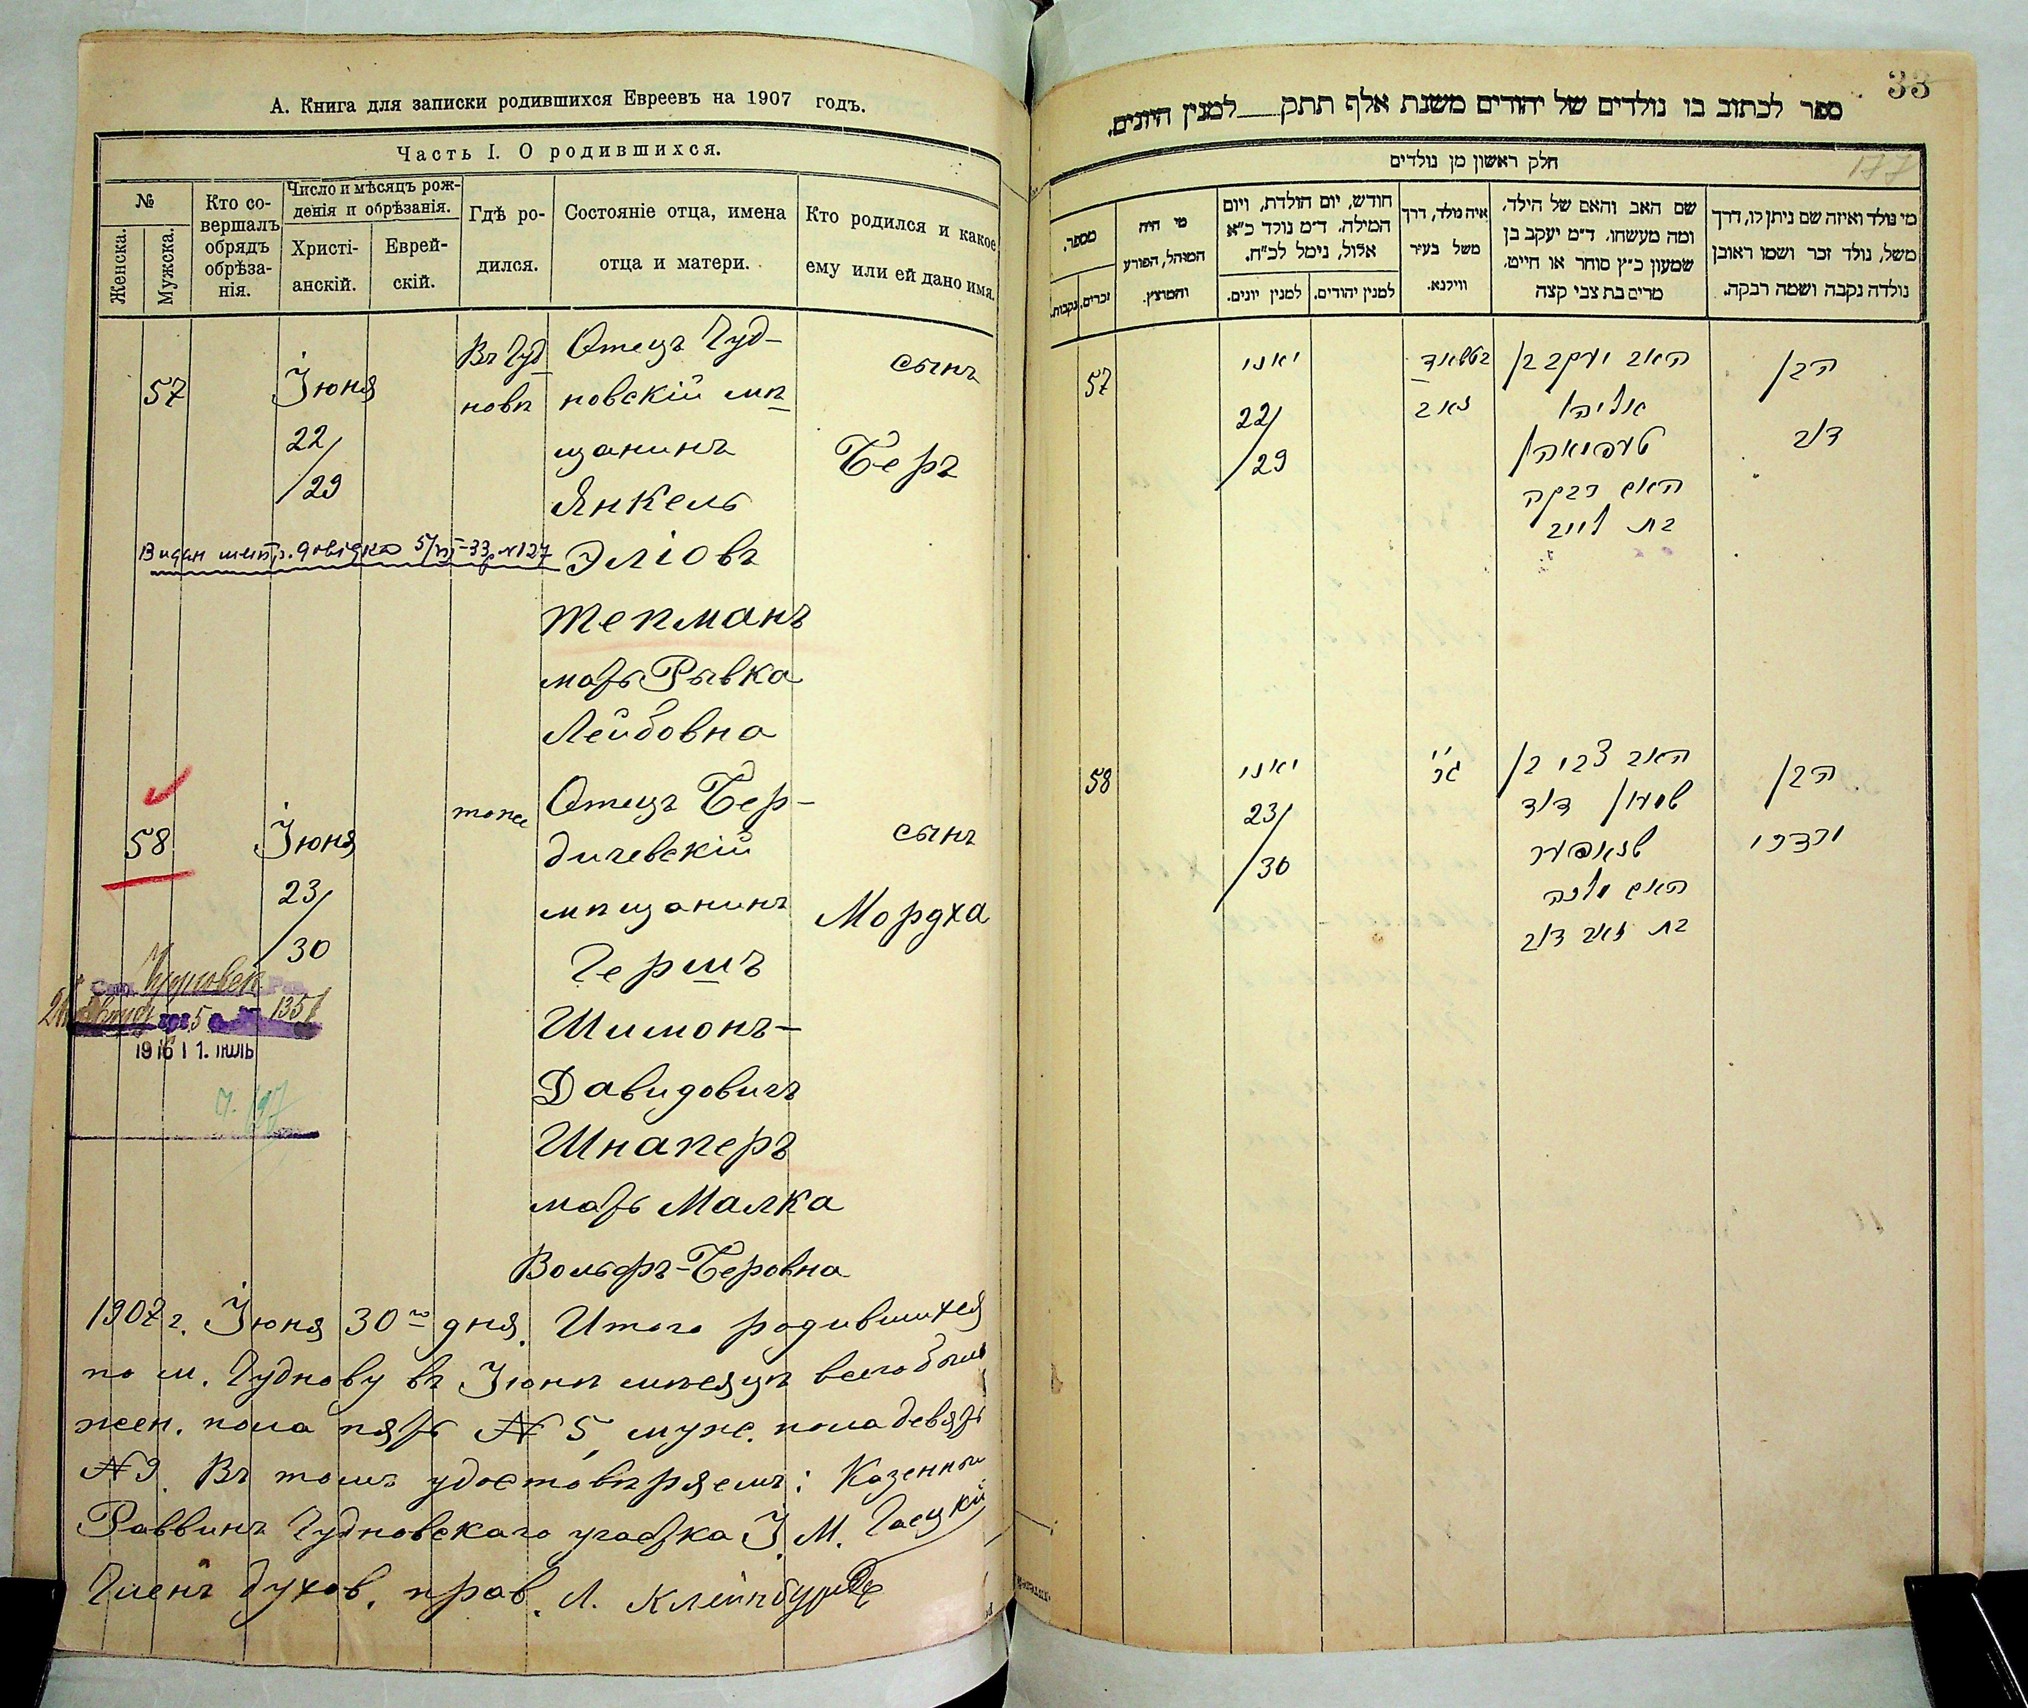 А. Книга для записки родившихся Евреевъ на 1907 годъ.
Часть I. О родившихся.
№
Женска.
Мужска.
Кто со-
вершалъ
обрядъ
обрѣза-
нія.
Число и мѣсяцъ рож-
денія и обрѣзанія.
Христі-
анскій.
Еврей-
скій.
Гдѣ ро-
дился.
Состояніе отца, имена
отца и матери.
Кто родился и какое
ему или ей дано имя.
57
Іюня
22/
/29
Въ Чуд
новѣ
Отецъ Чуд-
новскій мѣ
щанинъ
Янкель
Эліовъ
Тепманъ
мать Рывка
Лейбовна
сынъ
Беръ
Видан метр. довідка 5/VI-33р №127
58
Іюня
23/
/30
тоже
Отецъ Бер-
дичевскій
мѣщанинъ
Гершъ
Шимонъ-
Давидовичъ
Шнаперъ
мать Малка
Вольфъ-Беровна
сынъ
Мордха
1351
1916 11. ІЮЛЬ
1907 г. Іюня 30го дня. Итого родившихся
по м. Чуднову въ Іюнѣ мѣсяцѣ всего было
жен. пола пять № 5, муж. пола девять
№ 9. Въ томъ удостовѣряемъ: Казенный
Раввинъ Чудновскаго участка І. М. Гаецкій
Членъ духов. прав. Л. Клейнбурдъ
33
177
ספר לכתוב בו נולדים של יהודים משנת אלף תתק למנין היונים.
חלק ראשון מן נולדים
מספר.
זכרים.
נקבות.
מי היה
המוהל, הפורע
והמוצץ.
חודש, יום הולדת, ויום
המילה. ד״מ נולד כ״א
אלול, נימל לכ״ח.
למנין יונים.
למנין יהודים.
איה נולד, דרך
משל בעיר
ווילנא.
שם האב והאם של הילד.
ומה מעשהו. ד״מ יעקב בן
שמעון כ״ץ סוחר או חייט.
מרים בת צבי קצה
מי נולד ואיזה שם ניתן לו, דרך
משל, נולד זכר ושמו ראובן
נולדה נקבה ושמה רבקה.
57
יאני
22/
/29
האב יעקב בן
אליהו
טעפמאן
האם רבקה
בת לייב
הבן
דוב
58
יאני
23/
/30
האב צבי בן
שמעון דוד
שנאפער
האם מלכה
בת זאב דוב
הבן
מרדכי